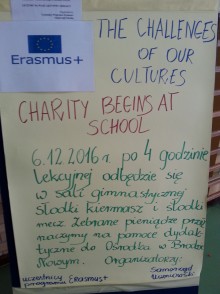 Erasmus+
THE CHALLENGES
OF OUR
CULTURES
CHARITY BEGINS AT
SCHOOL
6.12.2016 r. po 4 godzinie
lekcyjnej odbędzie się
w sali gimnastycznej
słodki kiermasz i słodki
mecz. Zebrane pieniądze prze
znaczymy na pomoce dydak
tyczne do Ośrodka w
Organizatorzy:
Samorząd
uczestnicy
Erasmus+